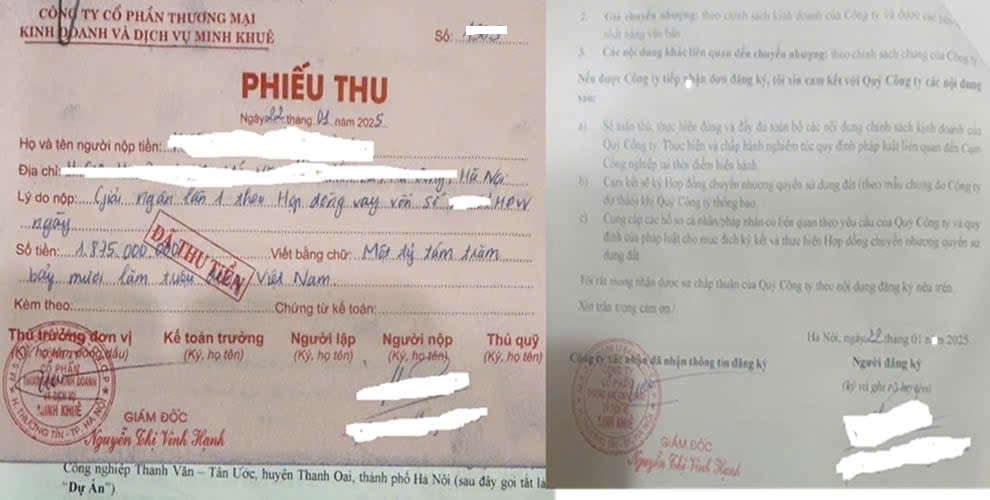 CÔNG TY CỔ PHẦN THƯƠNG MẠI
KINH DOANH VÀ DỊCH VỤ MINH KHUÊ
Số:
PHIẾU THU
Ngày 22 tháng 01 năm 2025
Họ và tên người nộp tiền:
Địa chỉ: Hà Nội
Lý do nộp: Giải ngân lần 1 theo Hợp đồng vay vốn số HĐVV
ngày
Số tiền: 1.875.000.000 Viết bằng chữ: Một tỷ tám trăm
bảy mươi lăm triệu Việt Nam.
ĐÃ THU TIỀN
Kèm theo: Chứng từ kế toán:
Thủ trưởng đơn vị Kế toán trưởng Người lập Người nộp Thủ quỹ
(Ký, họ tên, đóng dấu) (Ký, họ tên) (Ký, họ tên) (Ký, họ tên) (Ký, họ tên)
CỔ PHẦN
THƯƠNG MẠI KINH DOANH
VÀ DỊCH VỤ
MINH KHUÊ
H. THƯỜNG TÍN - TP. HÀ NỘI
GIÁM ĐỐC
Nguyễn Thị Vinh Hạnh
Công nghiệp Thanh Văn – Tân Ước, huyện Thanh Oai, thành phố Hà Nội (sau đây gọi tắt là
“Dự Án”)
2. Giá chuyển nhượng: theo chính sách kinh doanh của Công ty và được các bên
nhất bằng văn bản.
3. Các nội dung khác liên quan đến chuyển nhượng: theo chính sách chung của Công ty
Nếu được Công ty tiếp nhận đơn đăng ký, tôi xin cam kết với Quý Công ty các nội dung
sau:
a) Sẽ tuân thủ, thực hiện đúng và đầy đủ toàn bộ các nội dung chính sách kinh doanh của
Quý Công ty. Thực hiện và chấp hành nghiêm túc quy định pháp luật liên quan đến Cụm
Công nghiệp tại thời điểm hiện hành.
b) Cam kết sẽ ký Hợp đồng chuyển nhượng quyền sử dụng đất (theo mẫu chung do Công ty
dự thảo) khi Quý Công ty thông báo.
c) Cung cấp các hồ sơ cá nhân/pháp nhân có liên quan theo yêu cầu của Quý Công ty và quy
định của pháp luật cho mục đích ký kết và thực hiện Hợp đồng chuyển nhượng quyền sử
dụng đất
Tôi rất mong nhận được sự chấp thuận của Quý Công ty theo nội dung đăng ký nêu trên.
Xin trân trọng cảm ơn./.
Hà Nội, ngày 22 tháng 01 năm 2025
Công ty xác nhận đã nhận thông tin đăng ký Người đăng ký
(ký và ghi rõ họ tên)
MINH KHUÊ
GIÁM ĐỐC
Nguyễn Thị Vinh Hạnh